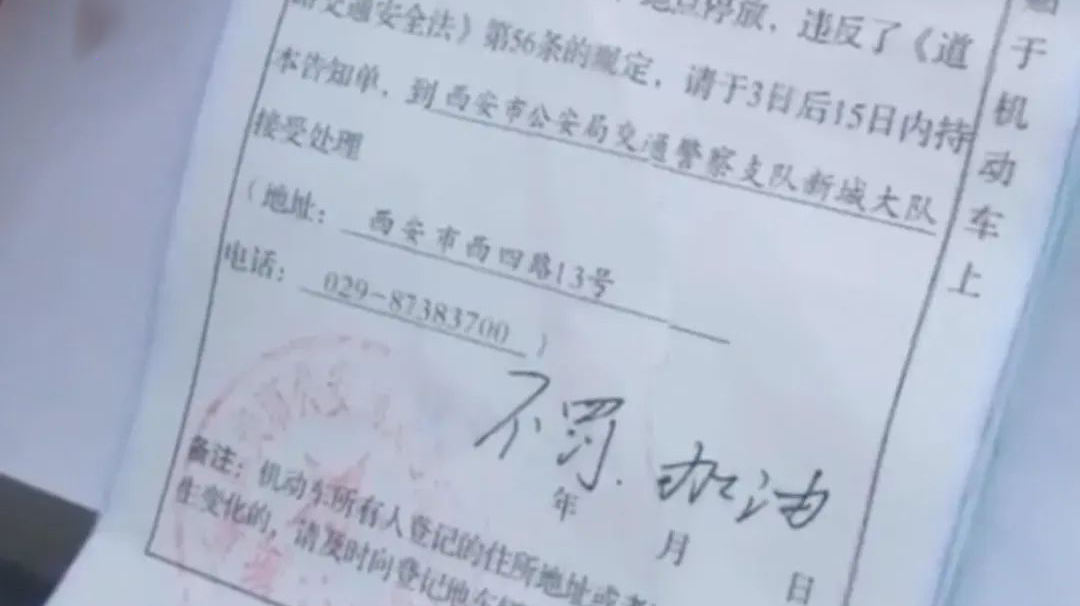 地点停放，违反了《道
路交通安全法》第56条的规定，请于3日后15日内持
本告知单，到西安市公安局交通警察支队新城大队
接受处理
（地址：西安市西四路13号
电话：029-87383700）
不罚.加油
年 月 日
备注：机动车所有人登记的住所地址或者
生变化的，请及时向登记地车辆
于机动车上